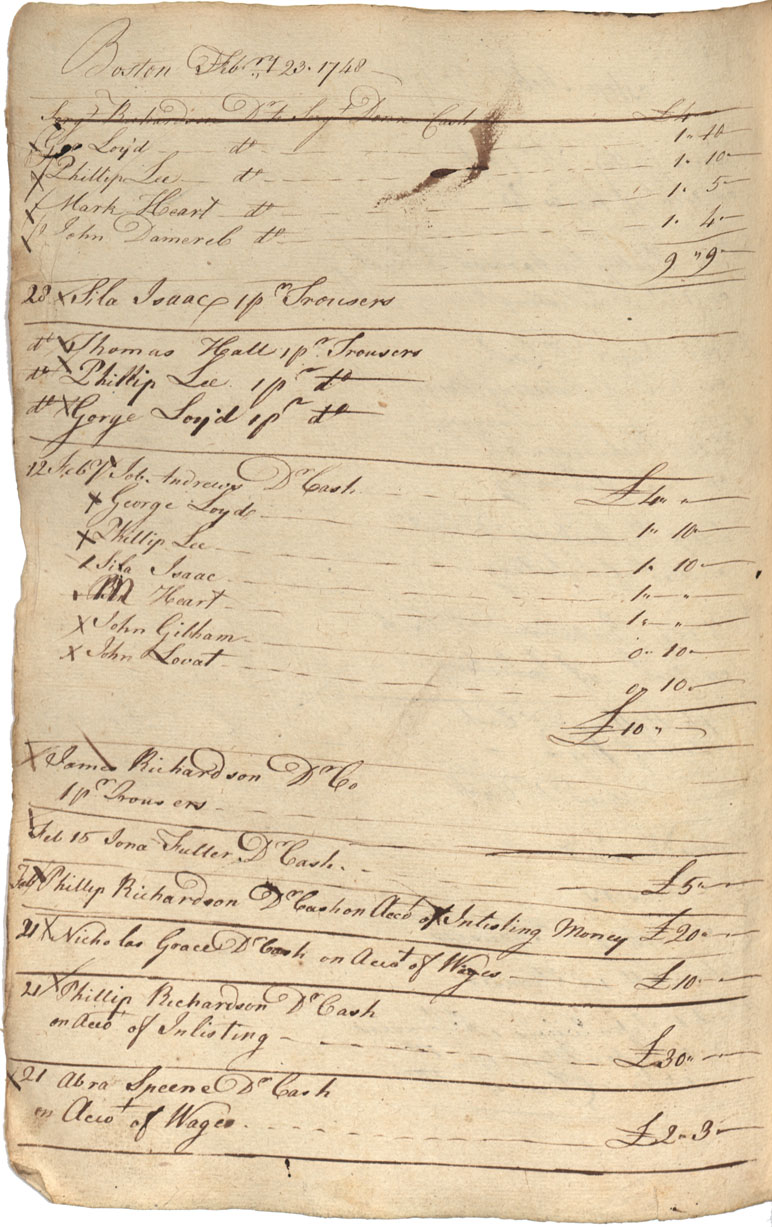 Boston Febry 23. 1748
Serjt Richardson Dr to Serjt Dunn Cash £4
Geo Loyd dto 1" 10
Phillip Lee dto 1" 10
Mark Heart dto 1" 5
John Damereb dto 1" 4
9 " 9
28 x Sila Isaac 1 pr Trousers
dto x Thomas Hall 1 pr Trousers
dto x Phillip Lee 1 pr dto
dto x Gorge Loyd 1 pr dto
12 Feby x Job Andrews Dr Cash £4" "
x George Loyd 1" 10
x Phillip Lee 1" 10
x Sila Isaac 1" "
M Heart 1" "
x John Gilham 0" 10
x John Lovat 0" 10
£10 "
x James Richardson Dr Co
1 pr Trousers
Feb 15 Iona Fuller Dr Cash £5"
x Phillip Richardson Dr Cash on Accot of Inlisting Money £20"
21 x Nicholas Grace Dr Cash on Accot of Wages £10"
21 x Phillip Richardson Dr Cash
on Accot of Inlisting £30"
x 21 Abra Speene Dr Cash
on Accot of Wages £2" 3